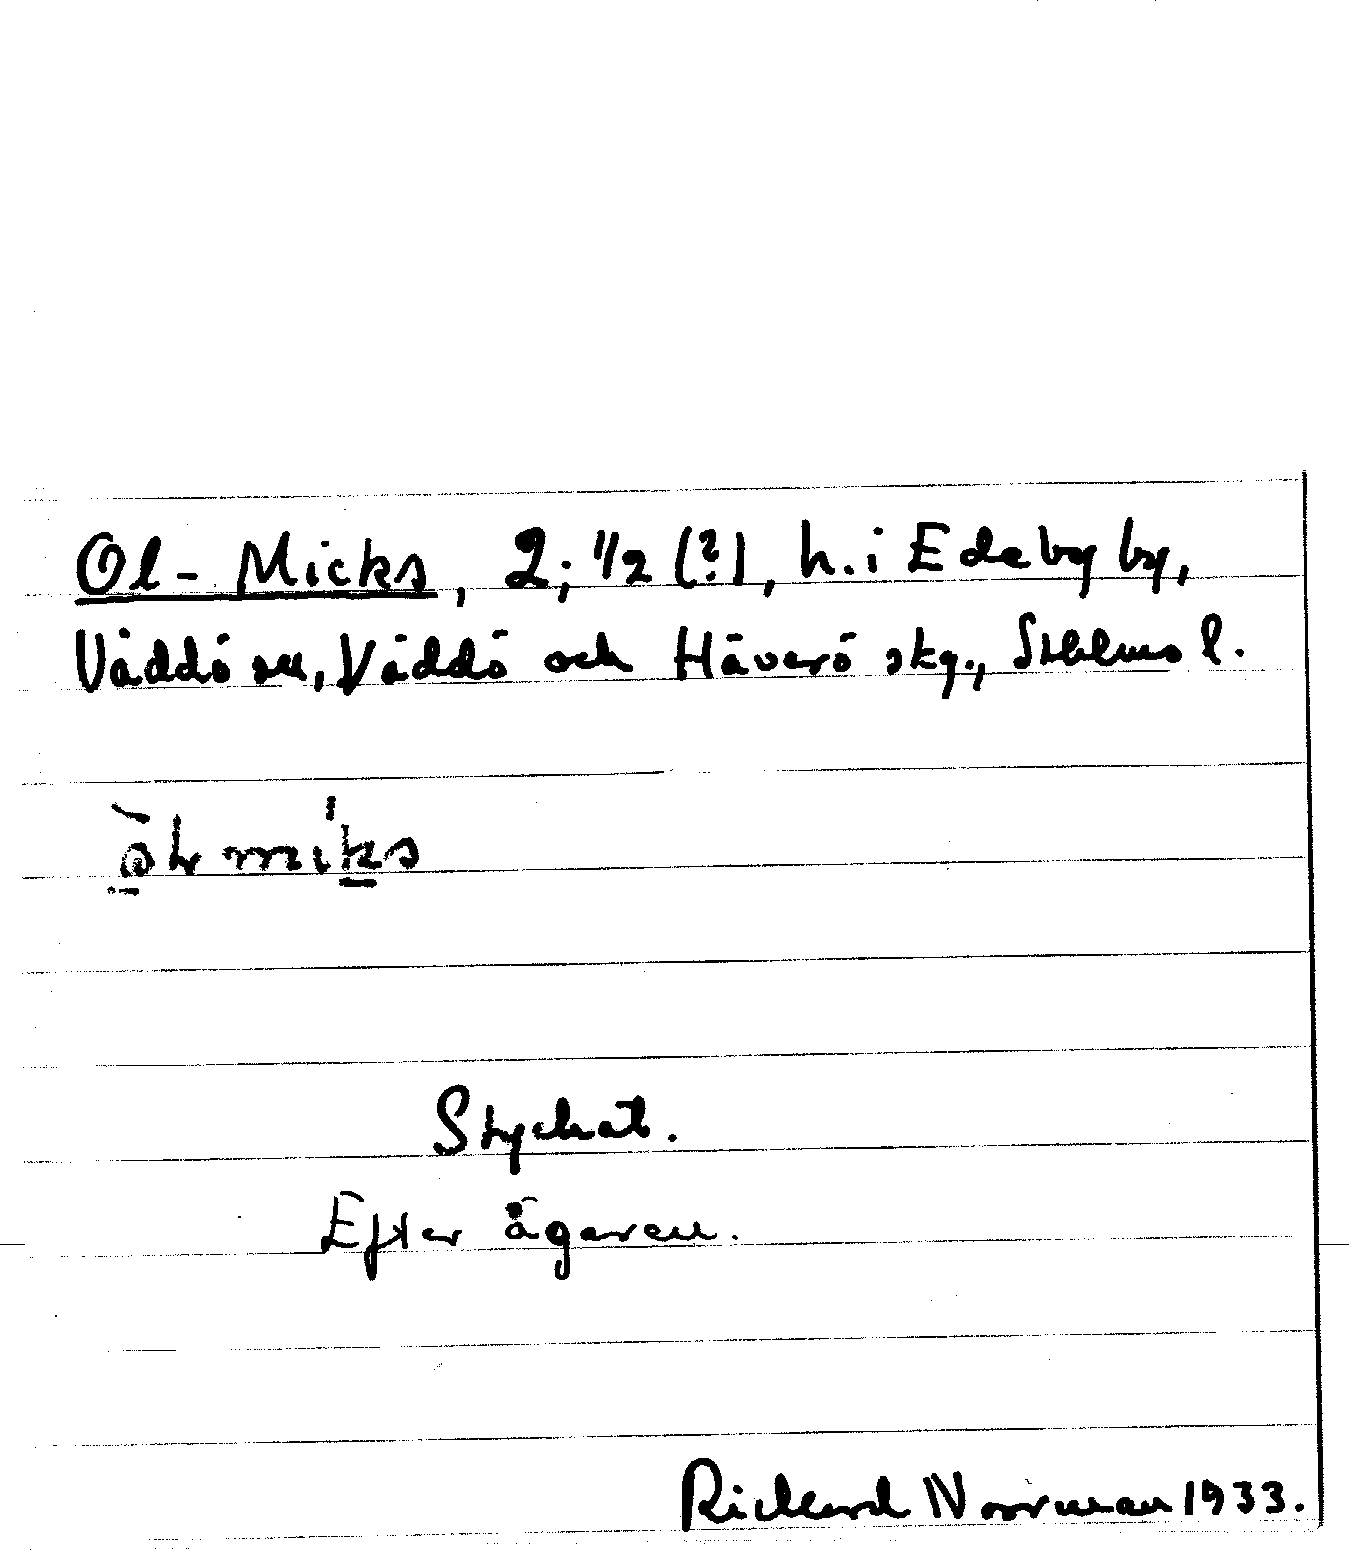 Ol-Micks, 2; 1/2 (?), h. i Edeby by,
Väddö sn, Väddö och Häverö skg., Sthlms l.
Styckat.
Efter ägaren.
Rickard Norrman 1933.